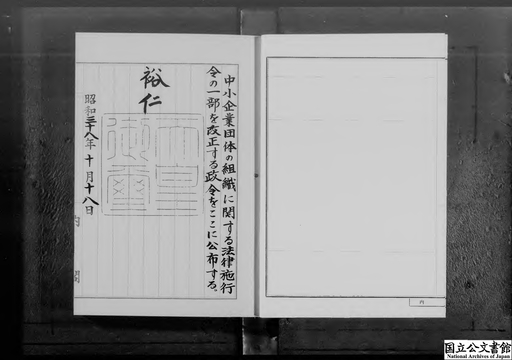 中小企業団体の組織に関する法律施行
令の一部を改正する政令をここに公布する。
裕仁
天皇
御璽
昭和三十八年十月十八日
内閣
内
国立公文書館
National Archives of Japan